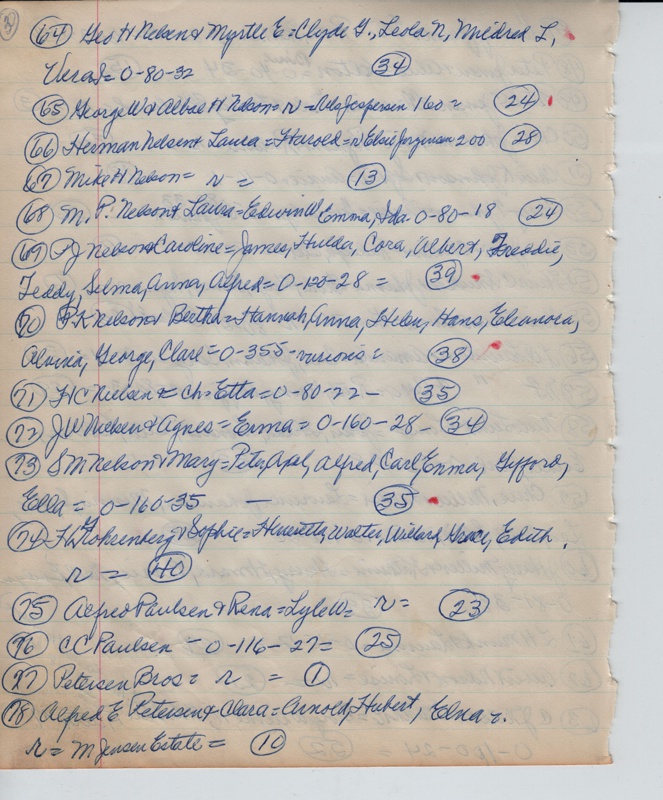 30
(64) Geo H Nelsen & Myrtle E = Clyde G., Leola N, Mildred L,
Vera I = 0-80-32 (34)
(65) George W & Albae H Nelson = r = Nels Jespersen 160 = (24)
(66) Herman Nelsen & Laura = Harold = r Elsie Jorgensen 200 (28)
(67) Mike H Nelson = r = (13)
(68) M. P. Nelson & Laura = Edwin W Emma, Ida - 0-80-18 (24)
(69) P J Nelson & Caroline = James, Hulda, Cora, Albert, Freddie,
Teddy, Selma, Anna, Alfred = 0-120-28 = (39)
(70) P. K Nelson & Bertha = Hannah, Anna, Helen, Hans, Eleanora,
Alvina, George, Clare = 0-355-various = (38)
(71) H C Nielsen = ch = Etta = 0-80-22 - (35)
(72) J W Nielsen & Agnes = Erma = 0-160-28 - (34)
(73) S M Nelson & Mary = Peter, Axel, Alfred, Carl, Emma, Gifford,
Ella = 0-160-35 — (35)
(74) H Kohrenberg & Sophie = Henrietta, Walter, Willard, Grace, Edith.
r = (40)
(75) Alfred Paulsen & Rena = Lyle W = r = (23)
(76) C C Paulsen - 0-116-27 = (25)
(77) Petersen Bros = r = (1)
(78) Alfred E Petersen & Clara = Arnold, Hubert, Edna r.
r = M Jensen Estate = (10)